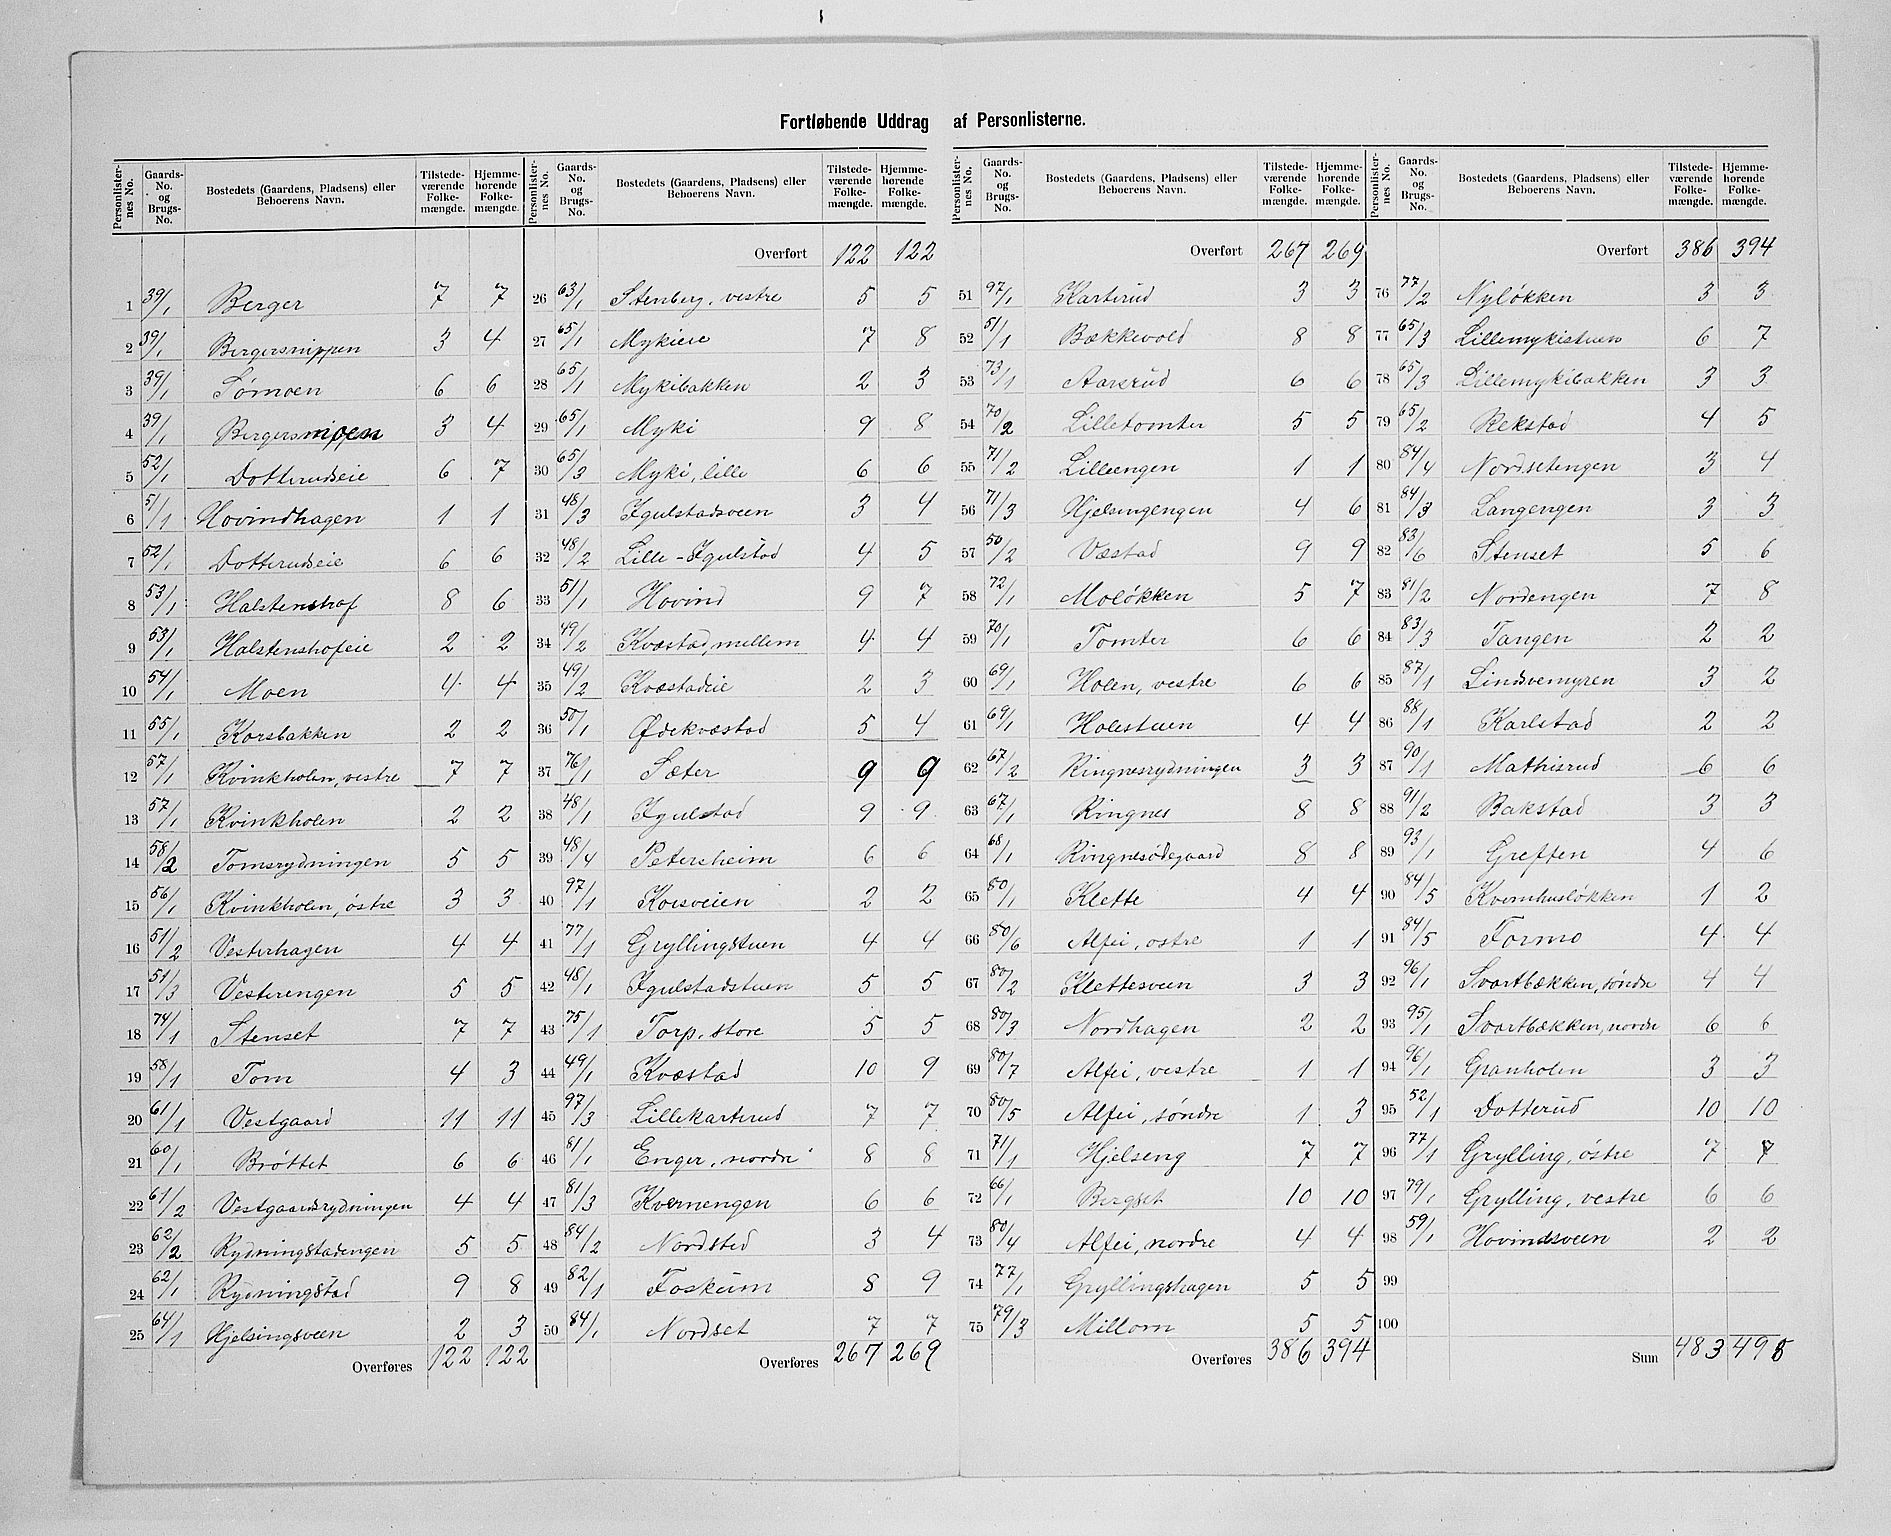 Fortløbende Uddrag af Personlisterne.
Personlister-nes No. Gaards-No. og Brugs-No. Bostedets (Gaardens, Pladsens) eller Beboerens Navn. Tilstede-værende Folke-mængde. Hjemme-hørende Folke-mængde.
1 39/1 Berger 7 7
2 39/1 Bergersnippen 3 4
3 39/1 Sørmoen 6 6
4 39/1 Bergersnippen 3 4
5 52/1 Dotterudseie 6 7
6 51/1 Hovindhagen 1 1
7 52/1 Dotterudseie 6 6
8 53/1 Halstenshof 8 6
9 53/1 Halstenshofeie 2 2
10 54/1 Moen 4 4
11 55/1 Korsbakken 2 2
12 57/1 Kvinkholen, vestre 7 7
13 57/1 Kvinkholen 2 2
14 58/2 Tomsrydningen 5 5
15 56/1 Kvinkholen, østre 3 3
16 51/2 Vesterhagen 4 4
17 51/3 Vesterengen 5 5
18 74/1 Stenset 7 7
19 58/1 Tom 4 3
20 61/1 Vestgaard 11 11
21 60/1 Brøttet 6 6
22 61/2 Vestgaardsrydningen 4 4
23 62/2 Rydningstadengen 5 5
24 62/1 Rydningstad 9 8
25 64/1 Hjelsingsveen 2 3
Overføres 122 122
Personlister-nes No. Gaards-No. og Brugs-No. Bostedets (Gaardens, Pladsens) eller Beboerens Navn. Tilstede-værende Folke-mængde. Hjemme-hørende Folke-mængde.
Overført 122 122
26 63/1 Stenberg, vestre 5 5
27 65/1 Mykieie 7 8
28 65/1 Mykibakken 2 3
29 65/1 Myki 9 8
30 65/3 Myki, lille 6 6
31 48/3 Igulstadsveen 3 4
32 48/2 Lille-Igulstad 4 5
33 51/1 Hovind 9 7
34 49/2 Kvæstad, mellem 4 4
35 49/2 Kvæstadeie 2 3
36 50/1 Ødekvæstad 5 4
37 76/1 Sæter 9 9
38 48/1 Igulstad 9 9
39 48/4 Petersheim 6 6
40 97/1 Korsveien 2 2
41 77/1 Gryllingstuen 4 4
42 48/1 Igulstadstuen 5 5
43 75/1 Torp, store 5 5
44 49/1 Kvæstad 10 9
45 97/3 Lillekarterud 7 7
46 81/1 Enger, nordre 8 8
47 81/3 Kvernengen 6 6
48 84/2 Nordsted 3 4
49 82/1 Foskum 8 9
50 84/1 Nordset 7 7
Overføres 267 269
Personlister-nes No. Gaards-No. og Brugs-No. Bostedets (Gaardens, Pladsens) eller Beboerens Navn. Tilstede-værende Folke-mængde. Hjemme-hørende Folke-mængde.
Overført 267 269
51 97/1 Karterud 3 3
52 51/1 Bækkevold 8 8
53 73/1 Aarsrud 6 6
54 70/2 Lilletomter 5 5
55 71/2 Lilleengen 1 1
56 71/3 Hjelsingengen 4 6
57 50/2 Væstad 9 9
58 72/1 Moløkken 5 7
59 70/1 Tomter 6 6
60 69/1 Holen, vestre 6 6
61 69/1 Holestuen 4 4
62 67/2 Ringnesrydningen 3 3
63 67/1 Ringnes 8 8
64 68/1 Ringnesødegaard 8 8
65 80/1 Klette 4 4
66 80/6 Alfei, østre 1 1
67 80/2 Klettesveen 3 3
68 80/3 Nordhagen 2 2
69 80/7 Alfei, vestre 1 1
70 80/5 Alfei, søndre 1 3
71 71/1 Hjelseng 7 7
72 66/1 Bergset 10 10
73 80/4 Alfei, nordre 4 4
74 77/1 Gryllingshagen 5 5
75 79/3 Millom 5 5
Overføres 386 394
Personlister-nes No. Gaards-No. og Brugs-No. Bostedets (Gaardens, Pladsens) eller Beboerens Navn. Tilstede-værende Folke-mængde. Hjemme-hørende Folke-mængde.
Overført 386 394
76 77/2 Nyløkken 3 3
77 65/3 Lillemykistuen 6 7
78 65/3 Lillemykibakken 3 3
79 65/2 Rekstad 4 5
80 84/4 Nordsetengen 3 4
81 84/3 Langengen 3 3
82 83/6 Stenset 5 6
83 81/2 Nordengen 7 8
84 83/3 Tangen 2 2
85 87/1 Lindsvemyren 3 2
86 88/1 Karlstad 2 2
87 90/1 Mathisrud 6 6
88 91/2 Bakstad 3 3
89 93/1 Greften 4 6
90 84/5 Kvernhusløkken 1 2
91 84/5 Formo 4 4
92 96/1 Svartbækken, søndre 4 4
93 95/1 Svartbækken, nordre 6 6
94 96/1 Granholen 3 3
95 52/1 Dotterud 10 10
96 77/1 Grylling, østre 7 7
97 79/1 Grylling, vestre 6 6
98 59/1 Hovindsveen 2 2
99
100
Sum 483 498